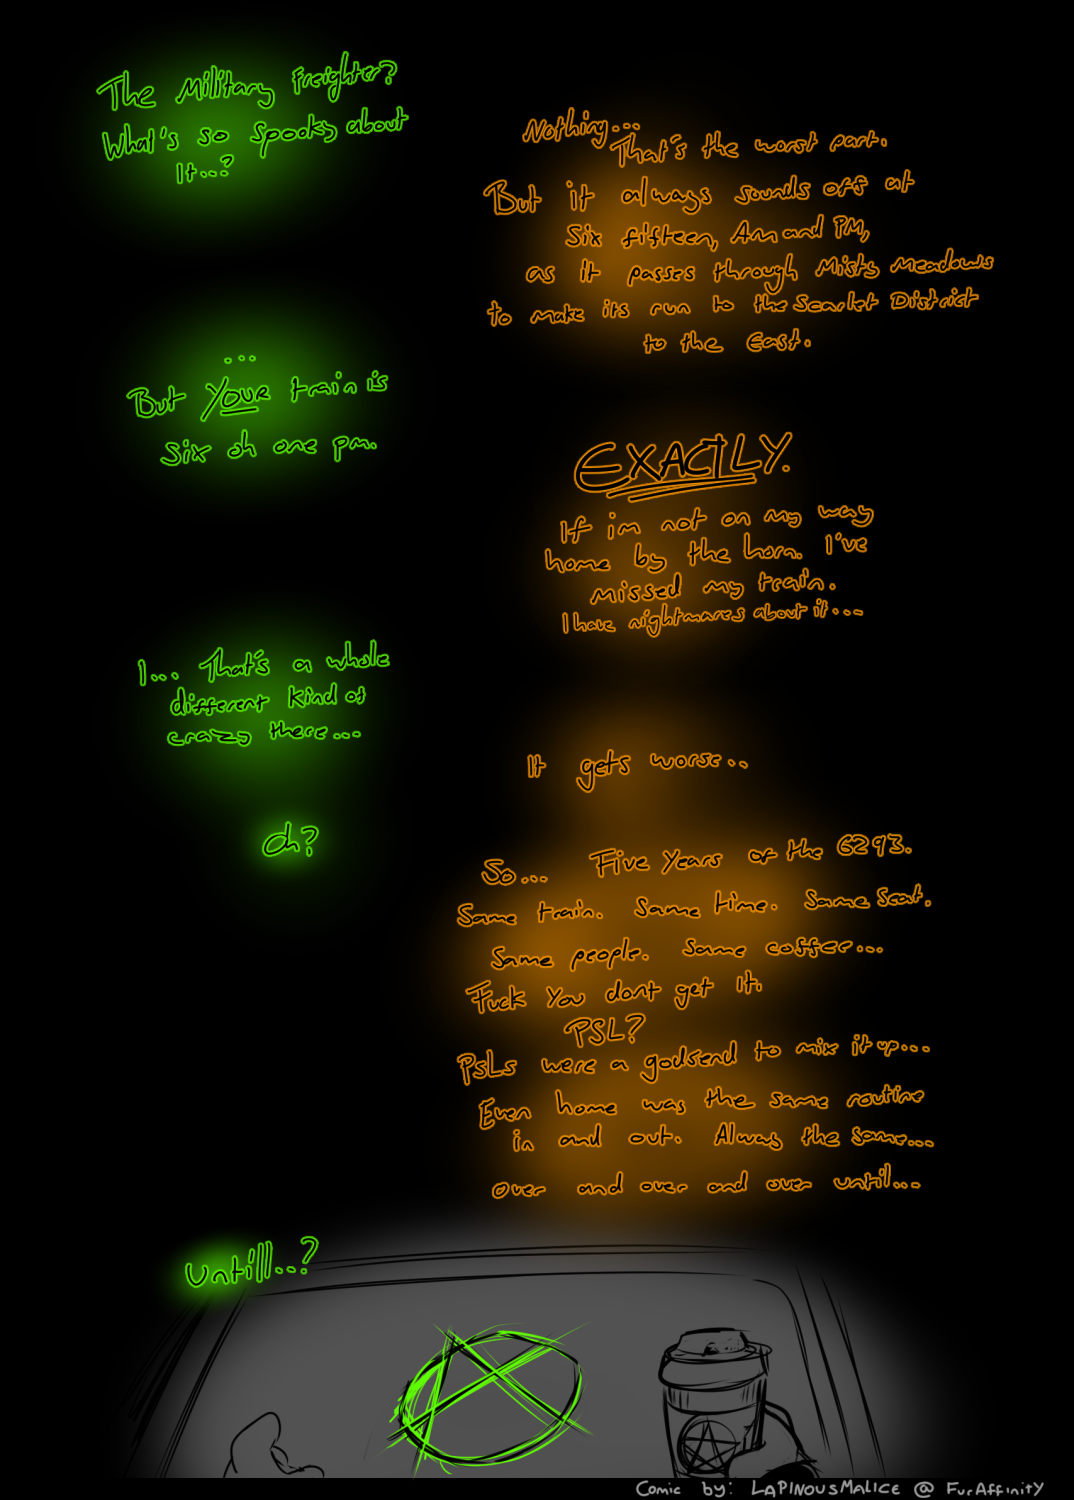 The Military Freighter?
What's so spooky about
It...?
Nothing...
That's the worst part.
But it always sounds off at
Six fifteen, Am and PM,
as it passes through Misty Meadows
to make its run to the Scarlet District
to the East.
...
But YOUR train is
Six oh one pm.
EXACTLY.
If im not on my way
home by the horn. I've
missed my train.
I have nightmares about it...
I... That's a whole
different kind of
crazy there...
It gets worse..
Oh?
So... Five Years of the 6293.
Same train. Same time. Same Seat.
Same people. Same coffee...
Fuck You dont get it.
PSL?
PSLs were a godsend to mix it up...
Even home was the same routine
in and out. Always the same...
over and over and over until...
Untill..?
Comic by: LAPINOUSMALICE @ FurAffinity